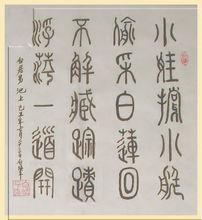 小娃撐小艇
偷采白蓮回
不解藏蹤蹟
浮萍一道開
白居易 池上